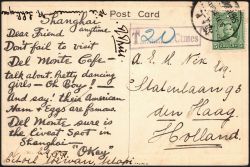 Post Card
Shanghai
Dear Friend anytime
Don't fail to visit
Del Monte Cafe-
talk about. Pretty dancing
girls - Oh Boy! - And
say! their American
Ham & Eggs are famous
Del Monte sure is
the livest Spot in
Shanghai
"Okay"
T 20 Centimes
A. E. M. Nix Esq.
Statenlaan 93
den Haag
Holland.